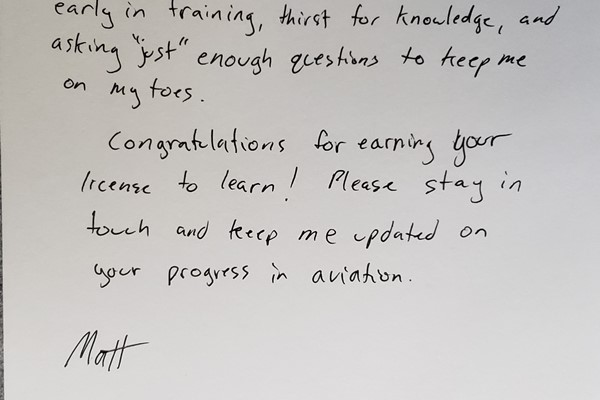 early in training, thirst for knowledge, and
asking "just" enough questions to keep me
on my toes.
Congratulations for earning your
license to learn! Please stay in
touch and keep me updated on
your progress in aviation.
Matt